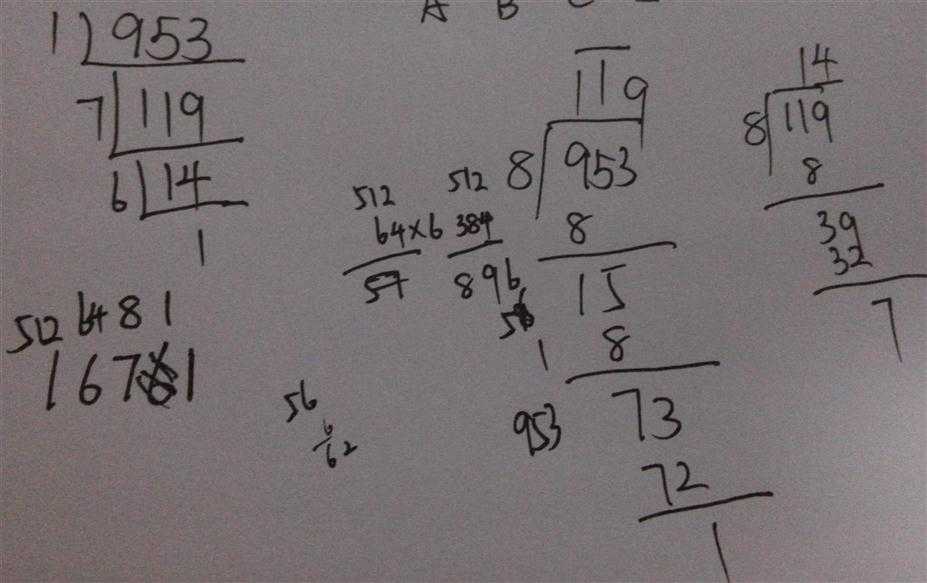 A B C
1 953
7 119
6 14
1
512 64 8 1
1 6 7 1
119
8 953
8
15
8
73
72
1
14
8 119
8
39
32
7
512
64×6
57
512
384
896
56
1
953
56
6
62